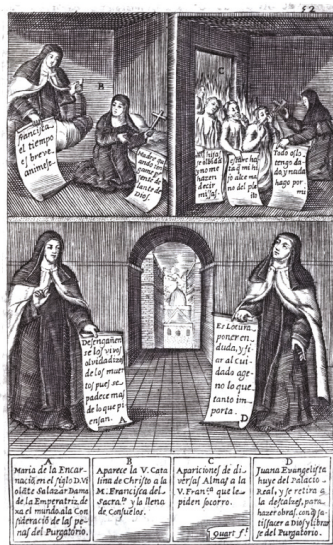 52
B
C
Francisca
el tiempo
es breve
animese
Madre qu
ando com
pane pre
sente de
lante de
Dios.
mis hijos
se olvidã
y no me
hazen
decir
misas.
estare ha
ta q mi hi
jo alce ma
no del pla
ito
Todo esto
tengo da
da y nada
hago por
mi
Desengañen
se los vivos
olvidadizos
de los muer
tos pues se
padece mas
de lo que pi
ensan. A
Es Locura
poner en
duda, y fi
ar al cui
dado age
no lo que
tanto im
porta.
D
A
Maria de la Encar
nacion en el siglo D. Vi
olãte Salazar Dama
de la Emperatriz, de
xa el mundo, a la Con
sideraciõ de las pe
nas del Purgatorio.
B
Aparece la V. Cata
lina de Christo a la
M. Francisca del
Sacra.to y la llena
de Consuelos.
C
Apariciones de di
versas Almas a la
V. Fran.ca que le
piden socorro.
Quart f.t
D
Juana Evangelista
huye del Palacio
Real, y se retira a
la descalcez, para
hazer obras, con q̃ sa
tisfacer a Dios y librar
se del Purgatorio.